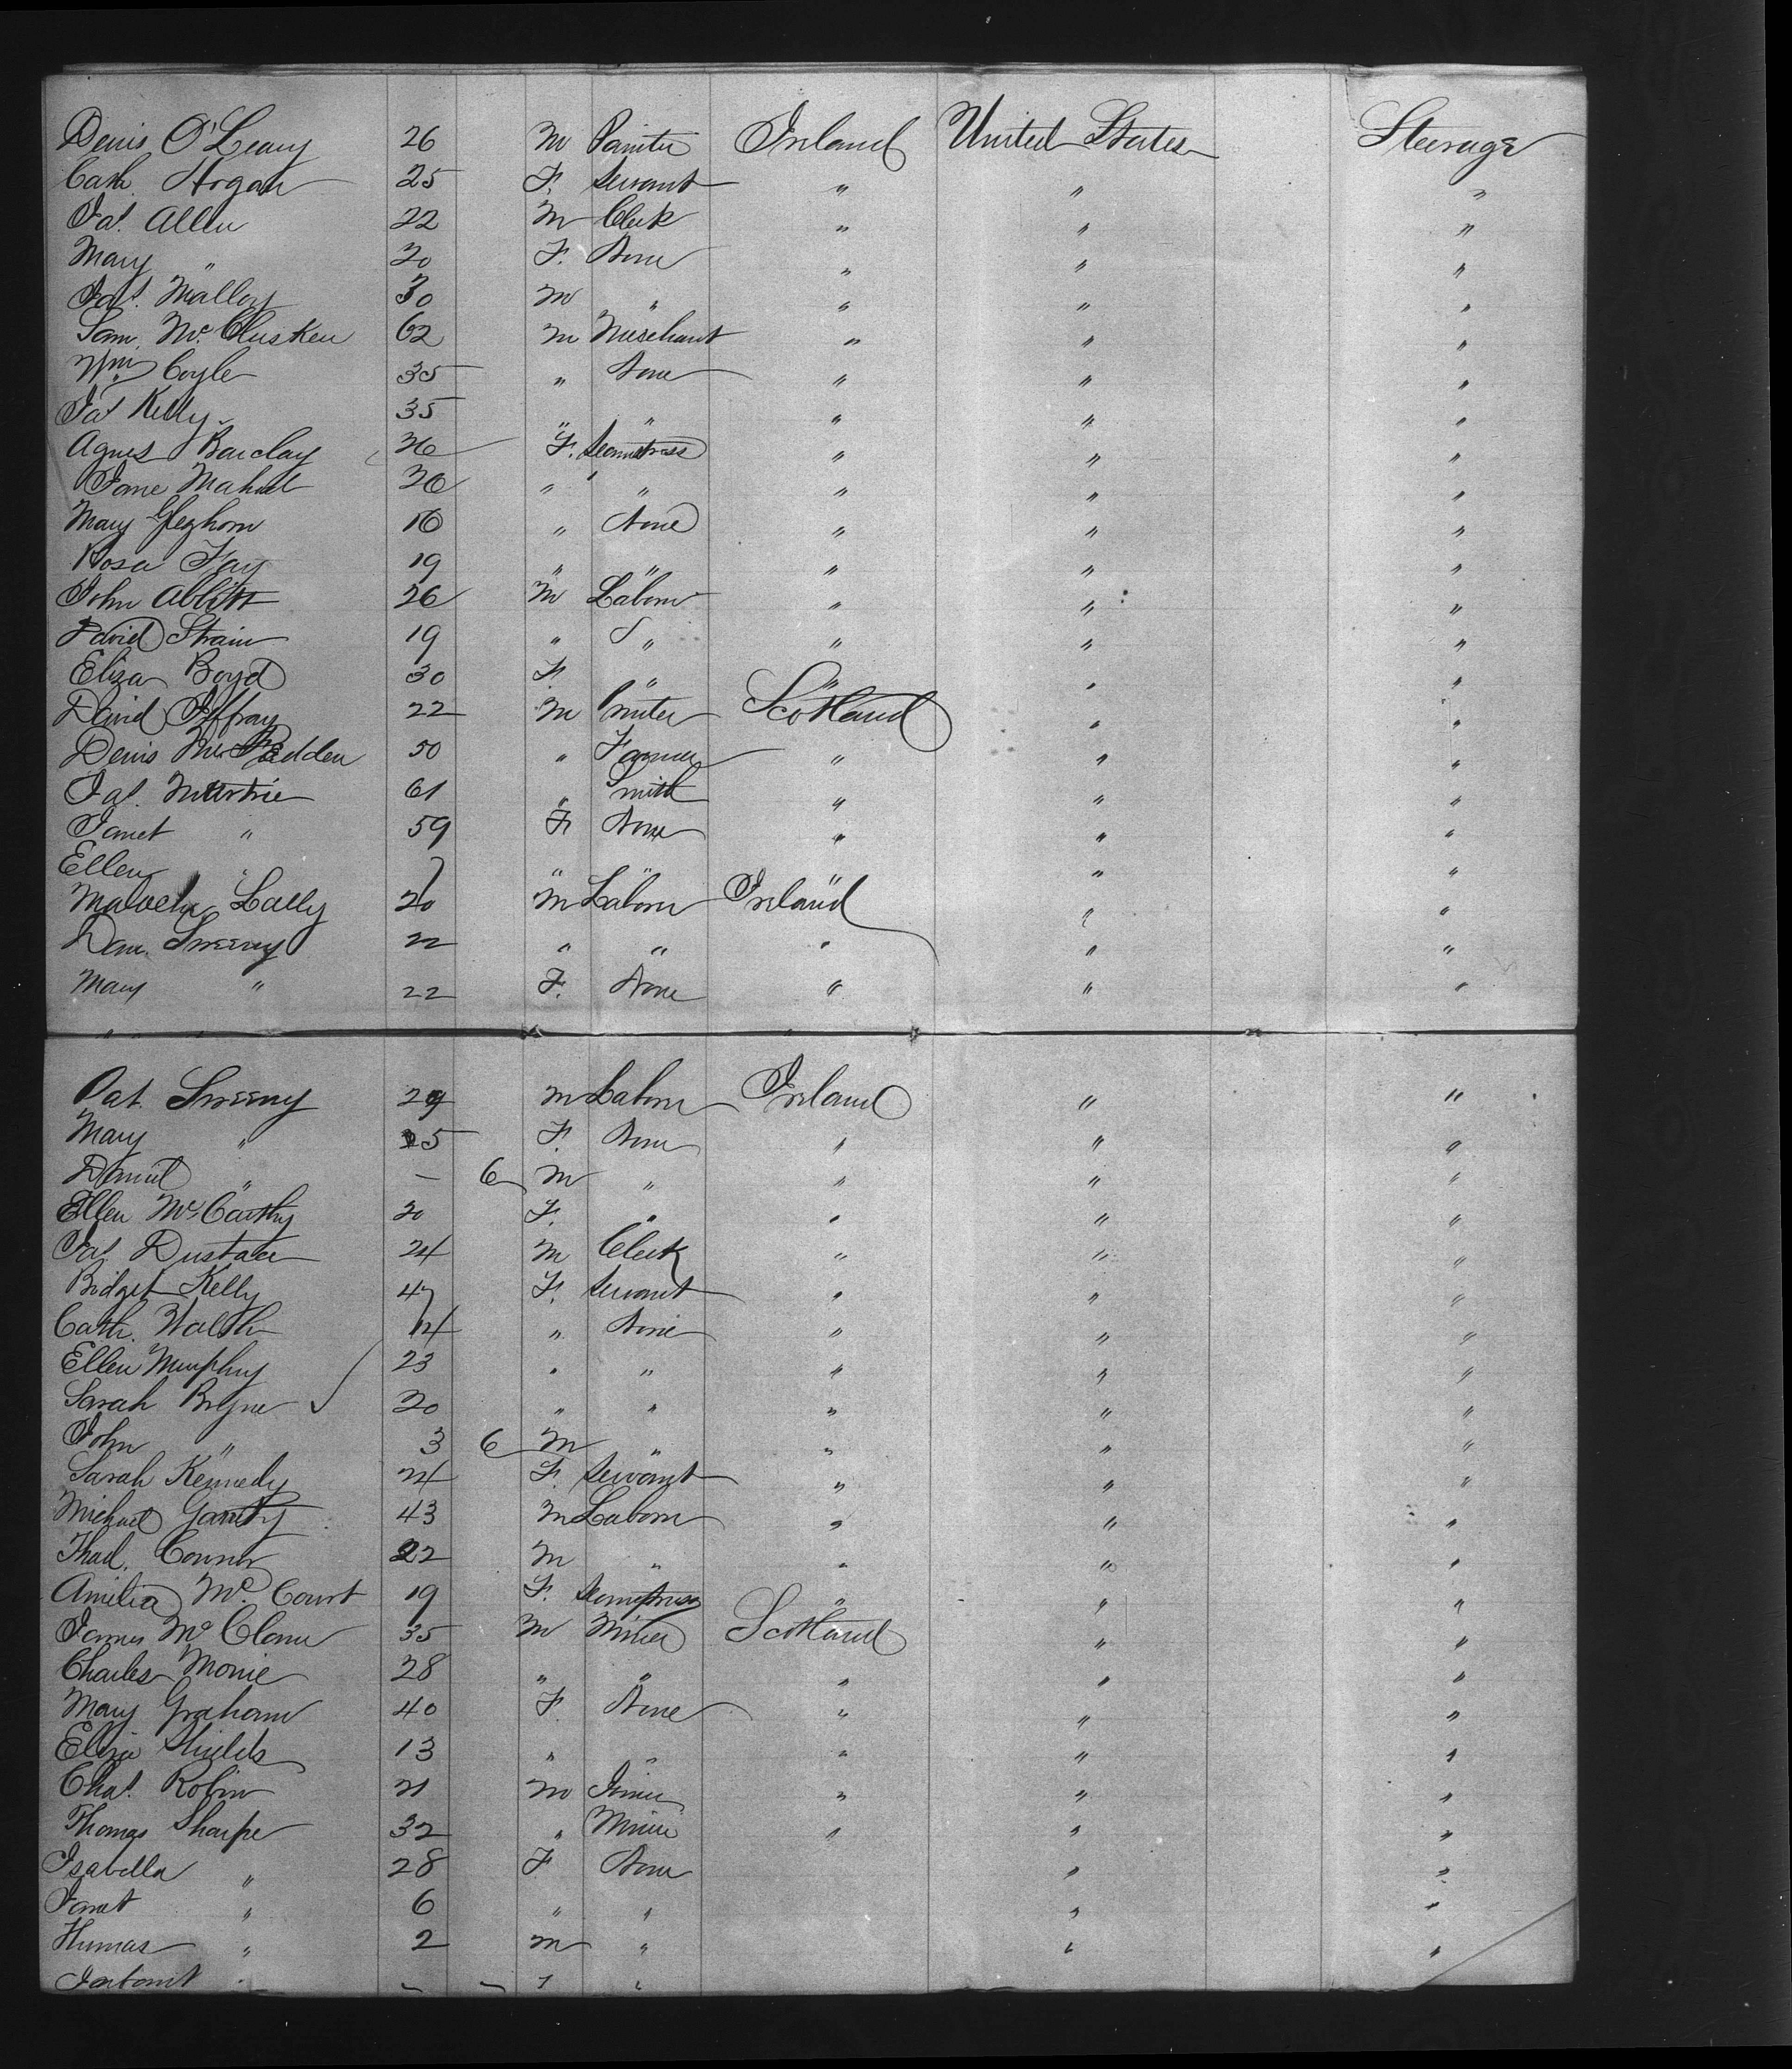 Denis O'Leary 26 M Painter Ireland United States Steerage
Cath. Horgan 25 F. Servant " " "
Jas. Allen 22 M Clerk " " "
Mary " 20 F. None " " "
Jas. Malloy 30 M " " " "
Sam. McClusken 62 M Merchant " " "
Wm. Coyle 35 " None " " "
Pat Kelly 35 " " " " "
Agnes Barclay 26 F. Seamstress " " "
Jane 26 " " " " "
Mary Gleghorn 16 " None " " "
Rosa Fay 19 " " " " "
John Abbott 26 M Laborer " " "
David Strain 19 " " " " "
Eliza Boyd 30 F. " " " "
David Jeffray 22 M Scotland " "
Denis McFadden 50 " Farmer " " "
Jas. 61 " Smith " " "
Janet " 59 F. None " " "
Ellen " 7 " " " " "
Malachi Lally 20 M Laborer Ireland " "
Dan. Sweeny 22 " " " " "
Mary " 22 F. None " " "
Pat. Sweeny 29 M Laborer Ireland " "
Mary " 25 F. None " " "
Daniel " — 6 M " " " "
Ellen McCarthy 20 F. " " " "
Jas. Dustace 24 M Clerk " " "
Bridget Kelly 47 F. Servant " " "
Cath. Walsh 14 " None " " "
Ellen Murphy 23 " " " " "
Sarah Bryne 20 " " " " "
John " 3 6 M " " " "
Sarah Kennedy 24 F. Servant " " "
Michael Garrity 43 M Laborer " " "
Thad. Connor 22 M " " " "
Amelia McCourt 19 F. Seamstress " " "
James McClone 35 M Miner Scotland " "
Charles Monie 28 " " " " "
Mary Graham 40 F. None " " "
Eliza Shields 13 " " " " "
Chas. Robin 21 M Joiner " " "
Thomas Sharpe 32 " Miner " " "
Isabella " 28 F None " "
Janet " 6 " " " "
Thomas " 2 M " " "
" — — "